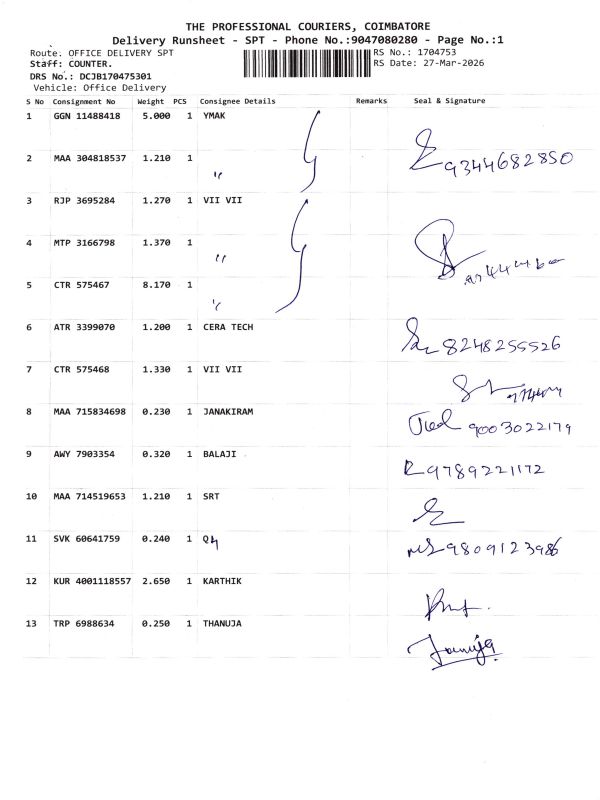 THE PROFESSIONAL COURIERS, COIMBATORE
Delivery Runsheet - SPT - Phone No.:9047080280 - Page No.:1
Route: OFFICE DELIVERY SPT RS No.: 1704753
Staff: COUNTER. RS Date: 27-Mar-2026
DRS No.: DCJB170475301
Vehicle: Office Delivery
S No Consignment No Weight PCS Consignee Details Remarks Seal & Signature
1 GGN 11488418 5.000 1 YMAK
2 MAA 304818537 1.210 1 〃 9344682850
3 RJP 3695284 1.270 1 VII VII
4 MTP 3166798 1.370 1 〃
5 CTR 575467 8.170 1 〃
6 ATR 3399070 1.200 1 CERA TECH 8248255526
7 CTR 575468 1.330 1 VII VII
8 MAA 715834698 0.230 1 JANAKIRAM 9003022179
9 AWY 7903354 0.320 1 BALAJI 9789221172
10 MAA 714519653 1.210 1 SRT
11 SVK 60641759 0.240 1 9809123986
12 KUR 4001118557 2.650 1 KARTHIK
13 TRP 6988634 0.250 1 THANUJA